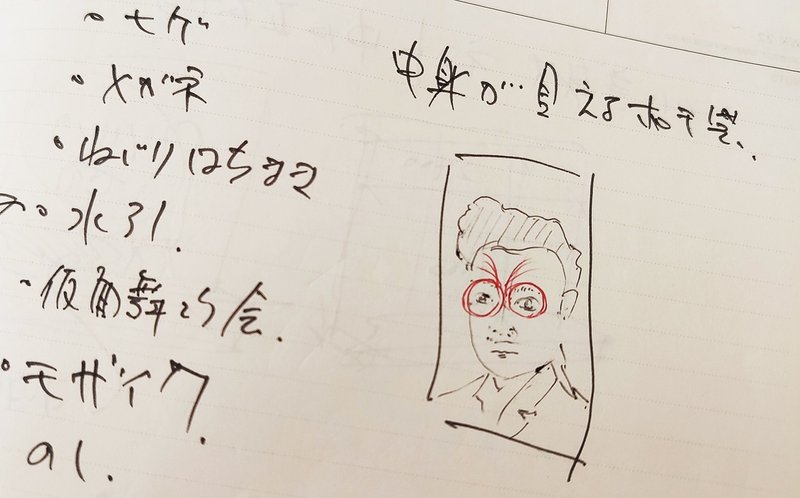 ・ヒゲ
・メガネ
・ねじりはちまき
・水引.
・仮面舞踏会.
・モザイク.
のし.
中身が見えるポチ袋、